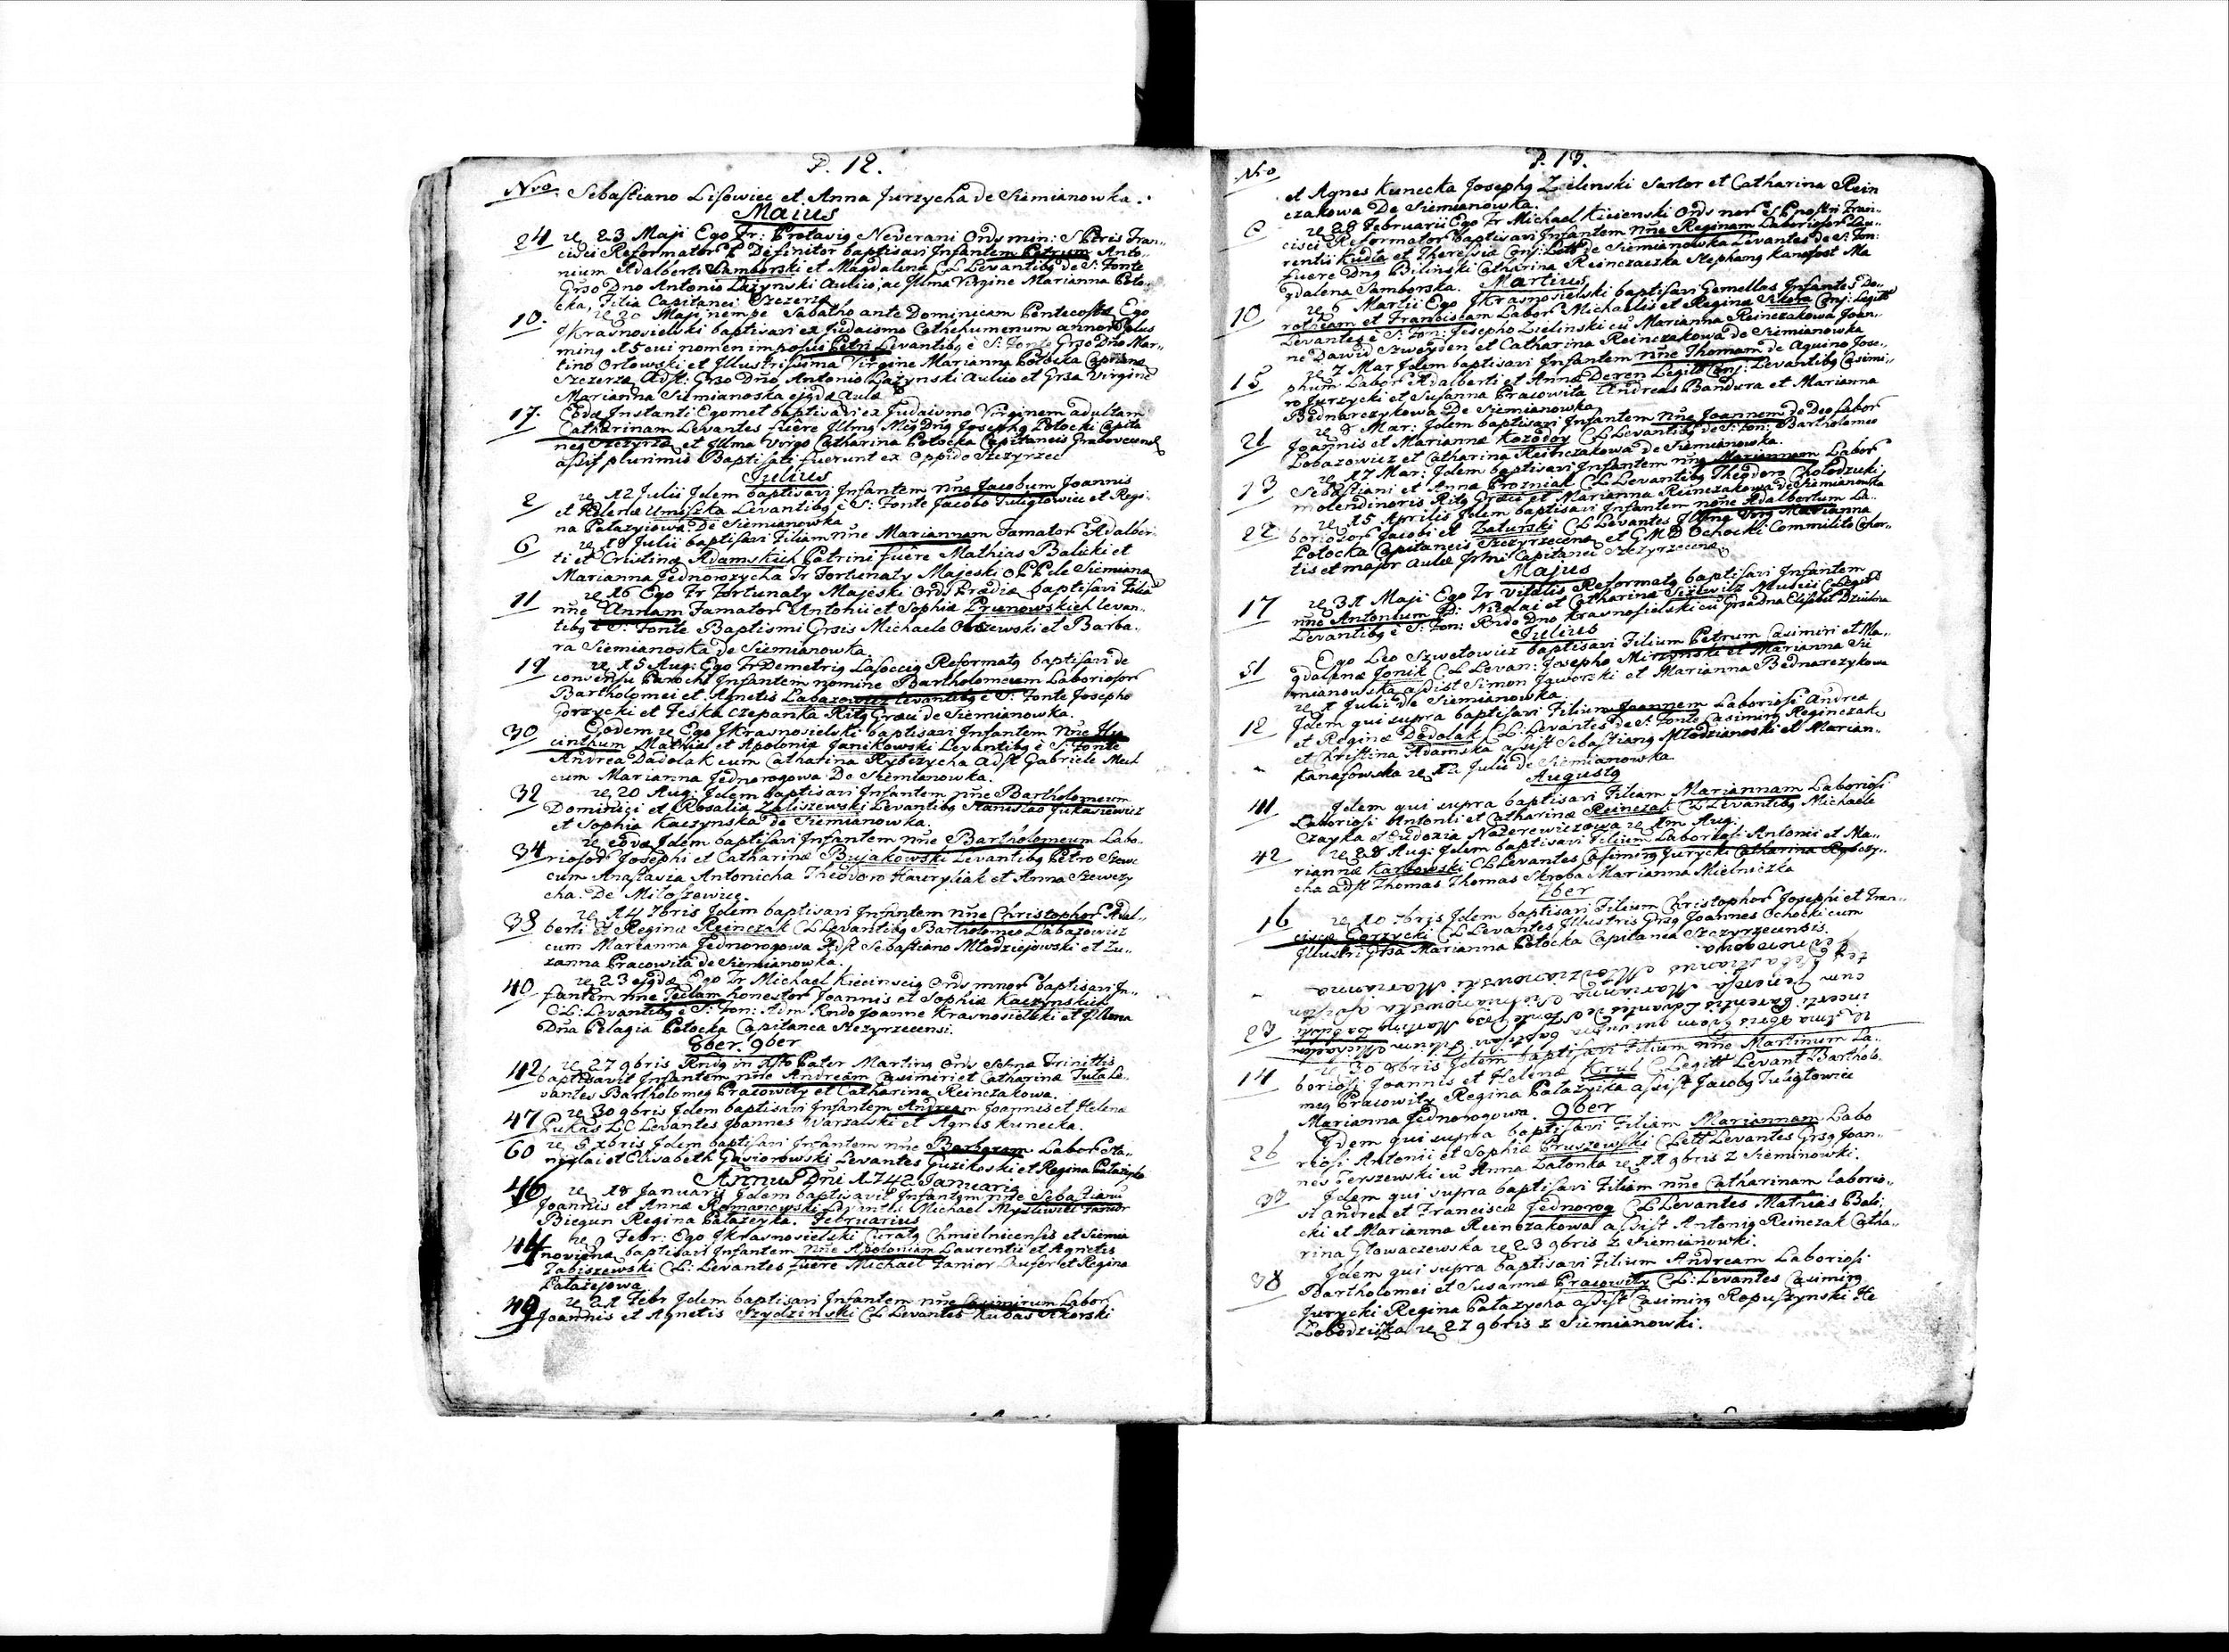 P. 12.
Nro. Sebastiano Lisowiec et Anna Jurzycha de Siemianowka.
Maius
24 re 23 Maji Ego Fr: Protasig Neverani Ords min: S Ptris Fran-
cisci Reformator P Definitor baptisavi Infantem Petrum Anto-
nium Adalberti Samborski et Magdalena CL Levantibg de S: Fonte
Grso Dno Antonio Lazynski Aulico, ac Illma Virgine Marianna Poto-
cka, Filia Capitanei Szczerze
10. re 20 Maji nempe Sabatho ante Dominicam Pentecostes Ego
JKrasnosielski baptisavi ex Judaismo Cathehumenum annor plus
ming 15 cui nomen imposui Petri Levantibg è S: Fonte Grso Dno Mar-
tino Orlowski et Illustrissima Virgine Marianna Potocka
Szczerze Adst: Grso Dno Antonio Lazynski Aulico et Grsa Virgine
Marianna Siemianoska ejgde Aulæ
17. Eode Instanti Egomet baptisavi ex Judaismo Virginem adultam
Catharinam Levantes fuêre Illmg Mig Dng Josephg Potocki Capita
neg Szczyrze et Illma Virgo Catharina Potocka Capitaneis
assis plurimis Baptisati fuerunt ex Oppido Szczyrzec
Julius
2 re 12 Julii Idem baptisavi Infantem nne Jacobum Joannis
et Helenæ Umiszka Levantibg è S: Fonte Jacobo Tuliglowiec et Regi-
na Patazyiowa De Siemianowka
6 re 18 Julii baptisavi Filiam nne Mariannam Famator Adalber-
ti et Cristinæ Adamskich Patrini fuêre Mathias Balicki et
Marianna Jednorozycha Fr Fortunaty Majeski de Siemiano
11 re 26 Ego Fr Fortunaty Majeski Ords Prædiæ baptisavi Filia
nne Annam Famator Antonii et Sophiæ Prunowskich levan-
tibg è S: Fonte Baptismi Grsis Michaele Olszewski et Barba-
ra Siemianoska de Siemianowka.
19 re 15 Aug: Ego Fr Demetrig Lasoccig Reformatg baptisavi de
consensu Parochi Infantem nomine Bartholomeum Laboriosor
Bartholomei et Agnetis Labazowicz levantibg è S: Fonte Josepho
Gorzycki et Feska Czepanka Ritg Græci de Siemianowka.
30 Eodem re Ego JKrasnosielski baptisavi Infantem nne Hya
cinthum Mathiæ et Apoloniæ Janikowski Levantibg è S: Fonte
Andrea Dadolak cum Catharina Rybczycha Adst Gabriele Mech
cum Marianna Jednorogowa De Siemianowka.
32 re 20 Aug: Idem baptisavi Infantem nne Bartholomeum
Dominici et Rosaliæ Zaliszewski Levantibg Stanislao Jukasiewicz
et Sophia Kaczynska de Siemianowka.
34 re eode Idem baptisavi Infantem nne Bartholomeum Labo-
riosor Josephi et Catharinæ Bujakowski Levantibg Petro Szewc
cum Anastasia Antonicha Theodoro Hawryliak et Anna Szewczy
cha. De Miloszewice.
38 re 14 7bris Idem baptisavi Infantem nne Christophor Adal-
berti et Reginæ Reinczak CL Levantibg Bartholomeo Labazowicz
cum Marianna Jednorogowa Adst Sebastiano Mlodziejowski et Zu-
zanna Pracowita de Siemianowka.
40 re 23 ejgde Ego Fr Michael Kiecinscig Ords mnor baptisavi In-
fantem nne Teclam honestor Joannis et Sophiæ Kaczynskich
CL: Levantibg è S: Fon: Adm Rndo Joanne Krasnosielski et Illma
Dna Pelagia Potocka Capitanea Szczyrzecensi.
8ber. 9ber
42 re 27 9bris Rndg in Xsto Pater Marting Ords Ssmæ Trinittis
baptisavit Infantem nne Andream Casimiri et Catharinæ Tuta Le-
vantes Bartholomeg Pracowity et Catharina Reinczakowa.
47 re 30 9bris Idem baptisavi Infantem Andream Joannis et Helenæ
Lukas LC Levantes Joannes Warzalski et Agnes Kunecka.
60 re 6 Xbris Idem baptisavi Infantem nne Barbaram Labor Sta-
nislai et Elisabeth Gasiorowski Levantes Guzikoski et Regina
Annus Dni 1742 Januarig
46 re 18 Januarii Idem baptisavit Infantem nne Sebastiani
Joannis et Annæ Romanowski Levantes Michael Mysliwiec
Biegun Regina Patazeyka. Februarius
44 re 9 Febr: Ego JKrasnosielski Curatg Chmielnicensis et Siemia
noviens baptisavi Infantem nne Apoloniam Laurentii et Agnetis
Zabiszewski CL: Levantes fuêre Michael Janior et Regina
Patazejowa
49 re 21 Febr Idem baptisavi Infantem nne Casimirum Labor
Joannis et Agnetis Szydzinski CL Levantes Kubas Sikorski
P. 13.
Nro
et Agnes Kunecka Josephg Zielinski Sartor et Catharina Rein
czakowa De Siemianowka.
6 re 28 Februarii Ego Fr Michael Kicienski Ords nor S P nostri Fran-
cisci Reformator baptisavi Infantem nne Reginam Laboriosor Lau-
rentii Kudla et Theressiæ Conj: Lett de Siemianowka Levantes de S: Fon:
fuere Dng Bilinski Catharina Reinczaczka Stephang Kanafost Ma
gdalena Samborska. Martius
10 re 6 Martii Ego JKrasnosielski baptisavi Gemellas Infantes Do-
rotheam et Franciscam Labor Michaelis et Reginæ Conj: Legitt
Levantes è S: Fon: Josepho Zielinski cũ Marianna Reinczakowa Joan-
ne Dawid Szweyden et Catharina Reinczakowa de Siemianowka
15 re 7 Mar Idem baptisavi Infantem nne Thomam de Aquino Jose-
phum Labor Adalberti et Annæ Deren Legitt Conj: Levantibg Casimi-
ro Jurzycki et Susanna Pracowita Andreas Bandura et Marianna
Bednarczykowa De Siemianowka
21 re 8 Mar: Idem baptisavi Infantem nne Joannem de Deo Labor
Joannis et Mariannæ Kozodoy CL Levantibg de S: Fon: Bartholomeo
Lobazowicz et Catharina Reinczakowa de Siemianowka.
13 re 17 Mar: Idem baptisavi Infantem nne Mariannam Labor
Sebastiani et Annæ Prozniak CL Levantibg Theodoro Cholodzuki
molendinoris Ritg Græci et Marianna Reinczakowa de Siemianowka
22 re 15 Aprilis Idem baptisavi Infantem nõne Adalbertum La-
boriosor Jacobi et Zaturski CL Levantes Illma Virg Marianna
Potocka Capitaneis Szczyrzecens et G M D Ochocki Commilito Cohor-
tis et major Aulæ Illmi Capitanei Szczyrzecens
Majus
17 re 31 Maji Ego Fr Vitalis Reformatg baptisavi Infantem
nne Antonium D: Nicolai et Catharina Aulici C Legitt
Levantibg è S: Fon: Rndo Dno Krasnosielski cũ Grsa Dna Elisabet
Julius
51 Ego Leo Szwetowicz baptisavi Filium Petrum Casimiri et Ma-
gdalenæ Jonik CL Levan: Josepho Mirzynski et Marianna Sie
mianowska assist Simon Jaworski et Marianna Bednarczykowa
re 1 Julii de Siemianowka.
12 Idem qui supra baptisavi Filium Joannem Laboriosi Andrea
et Reginæ Dodolak CL: Levantes de S: Fonte Casimirg Reginczak
et Christina Adamska assist Sebastiang Mlodzianoski et Marian-
Kanafowska re 12 Julii de Siemianowka
Augustg
41 Idem qui supra baptisavi Filiam Mariannam Laboriosi
Laboriosi Antonii et Catharinæ Reinczak CL Levantibg Michaele
Czayka et Eudoxia Nazerewiczowa re 1m Aug:
42 re 28 Aug: Idem baptisavi Filium Laboriosi Antonii et Ma-
riannæ Karbowski CL Levantes Casimirg Jurycki Catharina Rybczy-
cha adst Thomas Thomas Skroba Marianna Mielniczka
7ber
16 re 10 7bris Idem baptisavi Filium Christophor Josephi et Fran-
ciscæ Gorzycki CL Levantes Illustris Grsg Joannes Ochocki cum
Illustri Grsa Marianna Potocka Capitanea Szczyrzecensis.
23 re 7ma 8bris Idem qui supra baptisavi Filium Michaelem
incerti Parentis Levantes de S: Fonte Grsg Marting
cum Generosa Marianna Siemianowska assisten
tes Sebastiang Mlodzianowski Marianna
14 re 30 8bris Idem baptisavi Filium nne Martinum La-
boriosi Joannis et Helenæ Krul C Legitt Levant Barthol-
meg Pracowity Regina Patazyika assist Jacobg Tuliglowiec
Marianna Jednorogowa. 9ber
26 Idem qui supra baptisavi Filiam Mariannam Labo
riosi Antonii et Sophiæ Pruszewski C Lett Levantes Grsg Joan-
nes Perszewski cũ Anna Zatonka re 11 9bris z Sieminowki.
33 Idem qui supra baptisavi Filiam nne Catharinam laborio-
si Andrea et Franciscæ Jednorog CL Levantes Mathias Bali-
cki et Marianna Reinczakowa assist Antonig Reinczak Catha-
rina Glowaczewska re 23 9bris z Siemianowki.
38 Idem qui supra baptisavi Filium Andream Laboriosi
Bartholomei et Susannæ Pracowity CL: Levantes Casimirg
Jurycki Regina Patazycha assist Casimirg Ropuszynski He
Lobodziczka re 27 9bris z Siemianowki.